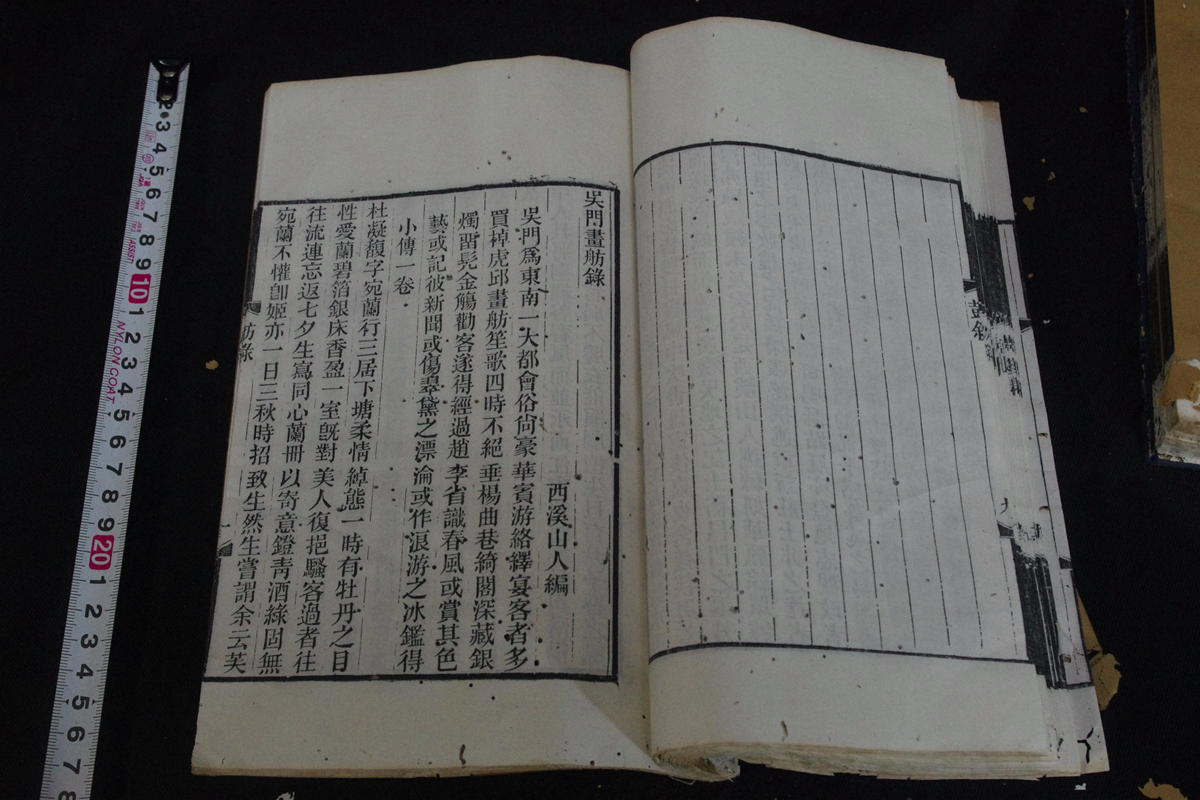 吳門畫舫錄
西溪山人編
吳門爲東南一大都會俗尙豪華賓游絡繹宴客者多
買掉虎邱畫舫笙歌四時不絕垂楊曲巷綺閣深藏銀
燭畱髠金觴勸客遂得經過趙李省識春風或賞其色
藝或記彼新聞或傷翠黛之漂淪或作浪游之冰鑑得
小傳一卷
杜凝馥字宛蘭行三居下塘柔情綽態一時有牡丹之目
性愛蘭碧箔銀床香盈一室旣對美人復挹騷客過者往
往流連忘返七夕生寫同心蘭冊以寄意鐙靑酒綠固無
宛蘭不懽卽姬亦一日三秋時招致生然生嘗謂余云芙
舫錄
一
2 3 4 5 6 7 8 9 10 1 2 3 4 5 6 7 8 9 20 1 2 3 4 5 6 7 8
NYLON COAT